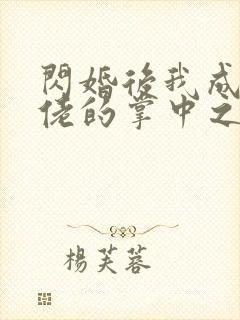 閃婚後我成
佬的掌中之
楊芙蓉